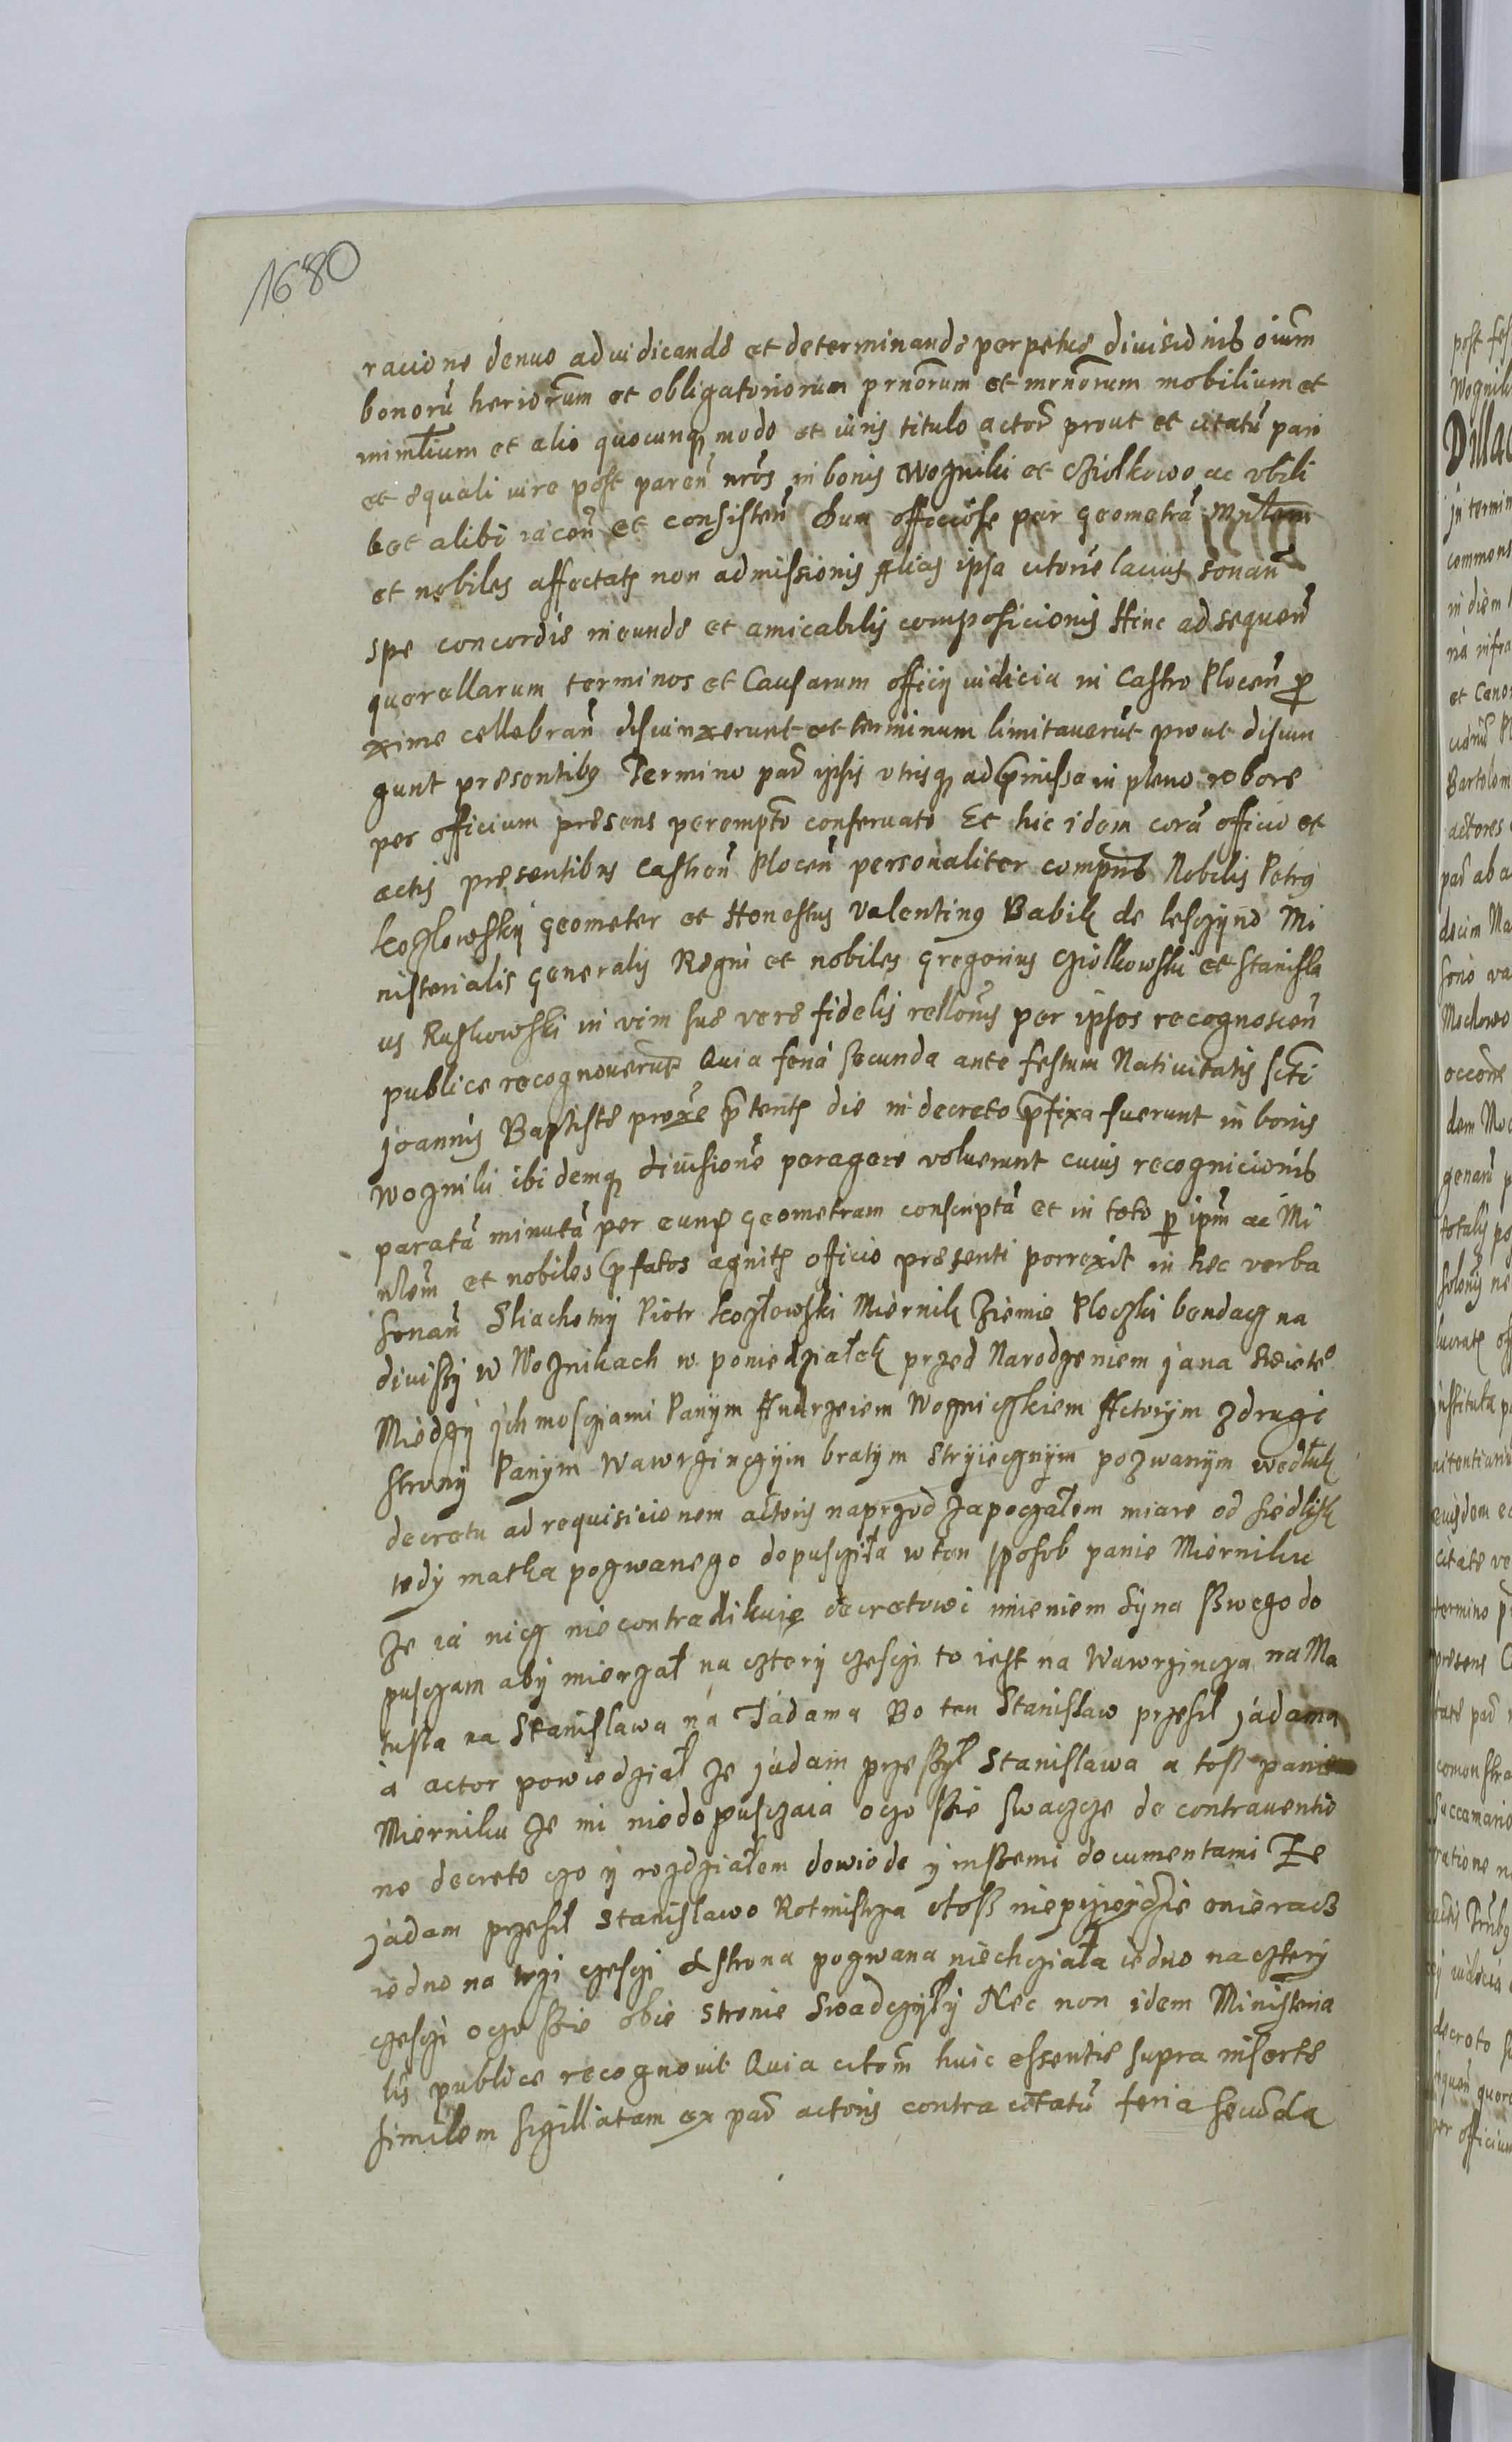 1680
racione denuo adiudicandae et determinandae perpetuae diuisionis oium
bonorũ heriorum et obligatoriorum prnorum et mrnorum mobilium et
immłium et alio quocunq modo et iuris titulo actorẽ prout et citatũ pari
et aequali iure post paren nros in bonis Woznikii et Cziolkowo ac vbili
bet alibi iacen et consisten Dum officiose per geometrã Mrlem
et nobiles affectatę non admissionis Alias ipsa citorie lacius sonan
spe concordiae ineundae et amicabilis composicionis Hinc ad sequen
querellarum terminos et Causarum officij iudicia in Castro Plocen p
xime cellebran disiunxerunt et terminum limitauerũt prout disiun
gunt praesentibg Termino pad ipsis vtrisq ad pmissa in pleno robore
per officium praesens perempto conseruato Et hic idem corã officio et
actis praesentibus Castren Plocen personaliter compns Nobilis Petrg
Kozlowsky geometer et Honestus Valenting Babik de Lesczyno Mi
nisterialis generalis Regni et nobiles Gregorius Cziolkowski et Stanisla
us Ruskowski in vim suae verae fidelis rellonis per ipsos recognoscen
publice recognouerũt Quia feria secunda ante festum Natiuitatis scti
Joannis Baptistae proxe ptentę die in decreto pfixa fuerunt in bonis
Woznikii ibidemq diuisione peragere voluerunt cuius recognicionis
paratã minutã per eunq geometram conscriptã et in toto p ipm ac Mi
rlem et nobiles pfatos agnitę officio praesenti porrexit in hec verba
sonan Sliachetny Piotr Kozłowski Miernik Ziemie Ploczki bendacz na
diuissy w Woznikach w poniedziałek przed Narodzeniem Jana Swieteo
Miedzy jchmosciami Panym Andrzeiem Wozniczkiem Actorym z drugi
strony Panym Wawrzinczym bratym stryiecznym pozwanym wedłuk
decretu ad requisicionem actoris naprzod zapoczałem miare od siedlisk
tedy matka pozwanego dopusciła w ten sposob panie Mierniku
ze ia nicz nie contradikuię decretowi imieniem syna sswego do
pusczam aby mierzał na cztery czesci to iest na Wawrzincza na Ma
tussa na Stanislawa na Jadama Bo ten Stanislaw przesil Jadama
a actor powiedział ze Jadam przessył Stanislawa a toss panie
Mierniku ze mi niedopusczaia oczo ssie swaczcze de contrauentio
ne decreto czo y rozdziałem dowiode y inssemi documentami Ze
Jadam przesil Stanislawo Rotmistrza otoss nieprzeydzie onieracz
iedno na trzi czesci A strona pozwana niechciała iedno na cztery
czesci oczo ssie obie stronie swadczyły Nec non idem Ministeria
lis publice recognouit Quia citom huic essentie supra insertae
similem sigillatam ex pad actoris contra citatũ feria secunda